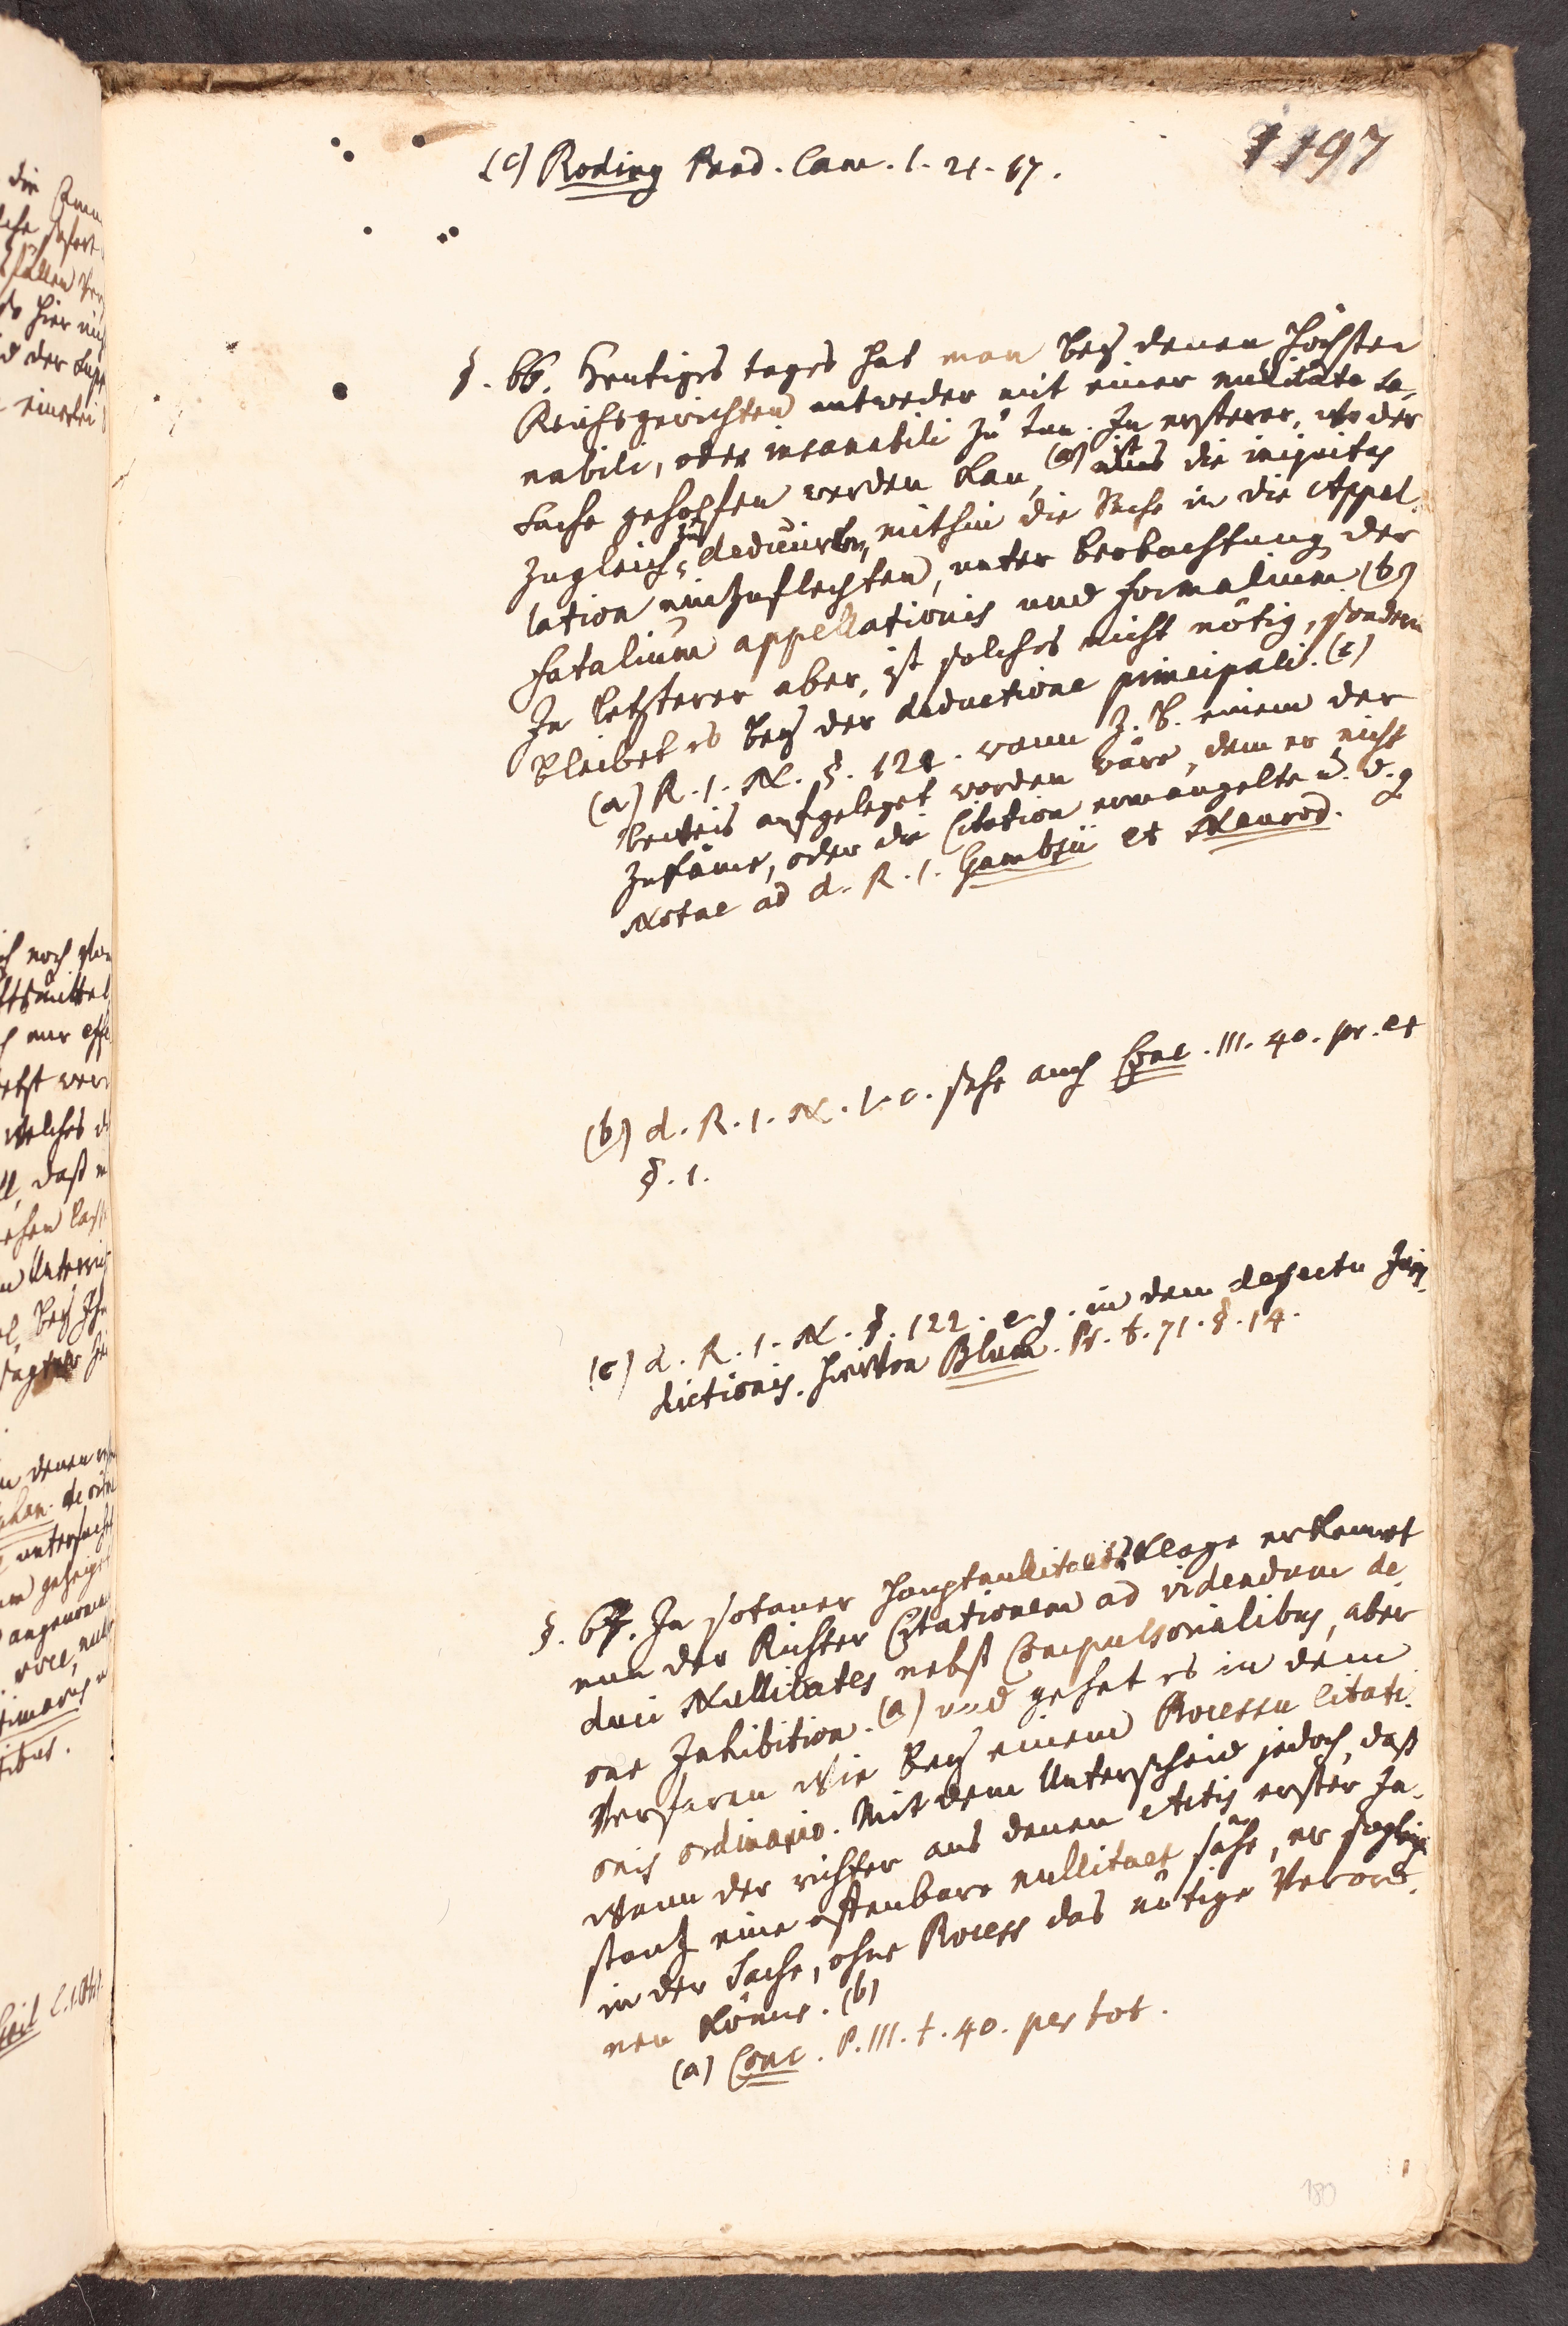 1197
(c) Roding Pand. Cam. l. 21. 67.
§. 66. Heutiges tages hat man bey denen höchsten
Reichsgerichten entweder mit einer nullitate sa-
nabili, oder insanabili zu tun. In ersterer, wo der
Sache geholfen werden kan, (a) ist die iniquitas
zugleich zu deduciren, mithin die Sache in die Appel-
lation einzuflechten, unter beobachtung der
fatalium appellationis und formalium (b)
In letzterer aber, ist solches nicht nötig, sondern
bleibet es bey der deductione principali. (c)
(a) R. I. N. §. 121. wann z. B. einem der
beweis aufgeleget worden wäre, dem er nicht
zukäme, oder die Citation ermangelte u. d. g
Notae ad d. R. I. Gambsii et Meurod.
(b) d. R. I. N. l. c. sehe auch Conc. III. 40. pr. et
§. 1.
(c) d. R. I. N. §. 122. e. g. in dem defectu Juris-
dictionis. hievon Blum. Pr. t. 71. §. 14.
§. 67. In sotaner hauptnullitaets Klage erkennet
nun der Richter Citationem ad videndum de-
duci Nullitates nebst Compulsorialibus, aber
one Inhibition. (a) und gehet es in dem
Verfaren wie bey einem Processu citati-
onis ordinario. Mit dem Unterscheid jedoch, daß
wenn der richter aus denen Actis erster In-
stantz eine offenbare nullitaet sähe, er sogleich
in der Sache, ohne Process das nötige Verord-
nen könne. (b)
(a) Conc. P. III. t. 40. per tot.
180